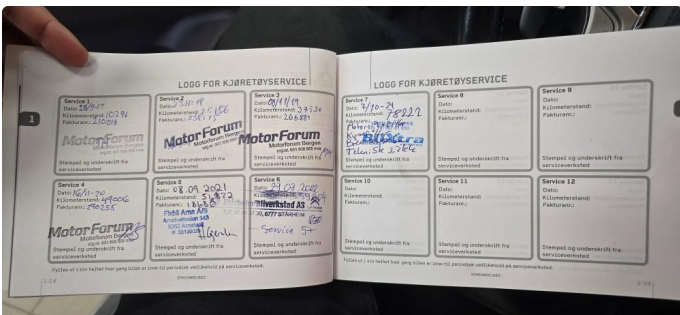 LOGG FOR KJØRETØYSERVICE
1
Service 1
Dato: 28/9-17
Kilometerstand: 10296
Fakturanr.: 210018
MotorForum
Stempel og underskrift fra
serviceverksted
Service 2
Dato:
Kilometerstand:
Fakturanr.:
MotorForum
Motorforum Bergen
Stempel og underskrift fra
serviceverksted
Service 3
Dato:
Kilometerstand:
Fakturanr.: 266881
MotorForum
Motorforum Bergen
Stempel og underskrift fra
serviceverksted
Service 4
Dato: 16/11-20
Kilometerstand: 49006
Fakturanr.: 290255
MotorForum
Motorforum Bergen
Stempel og underskrift fra
serviceverksted
Service 5
Dato: 08.09.2021
Kilometerstand: 51872
Fakturanr.:
Arna A/S
Stempel og underskrift fra
serviceverksted
Service 6
Dato:
Bilverksted AS
6777 STÅRHEIM
Service
Stempel og underskrift fra
serviceverksted
Fylles ut i sin helhet hver gang bilen er inne til periodisk vedlikehold på serviceverksted.
LOGG FOR KJØRETØYSERVICE
Service 7
Dato: 7/10-24
Kilometerstand: 78222
Service 8
Dato:
Kilometerstand:
Fakturanr.:
Stempel og underskrift fra
serviceverksted
Service 9
Dato:
Kilometerstand:
Fakturanr.:
Stempel og underskrift fra
serviceverksted
Service 10
Dato:
Kilometerstand:
Fakturanr.:
Stempel og underskrift fra
serviceverksted
Service 11
Dato:
Kilometerstand:
Fakturanr.:
Stempel og underskrift fra
serviceverksted
Service 12
Dato:
Kilometerstand:
Fakturanr.:
Stempel og underskrift fra
serviceverksted
Fylles ut i sin helhet hver gang bilen er inne til periodisk vedlikehold på serviceverksted.